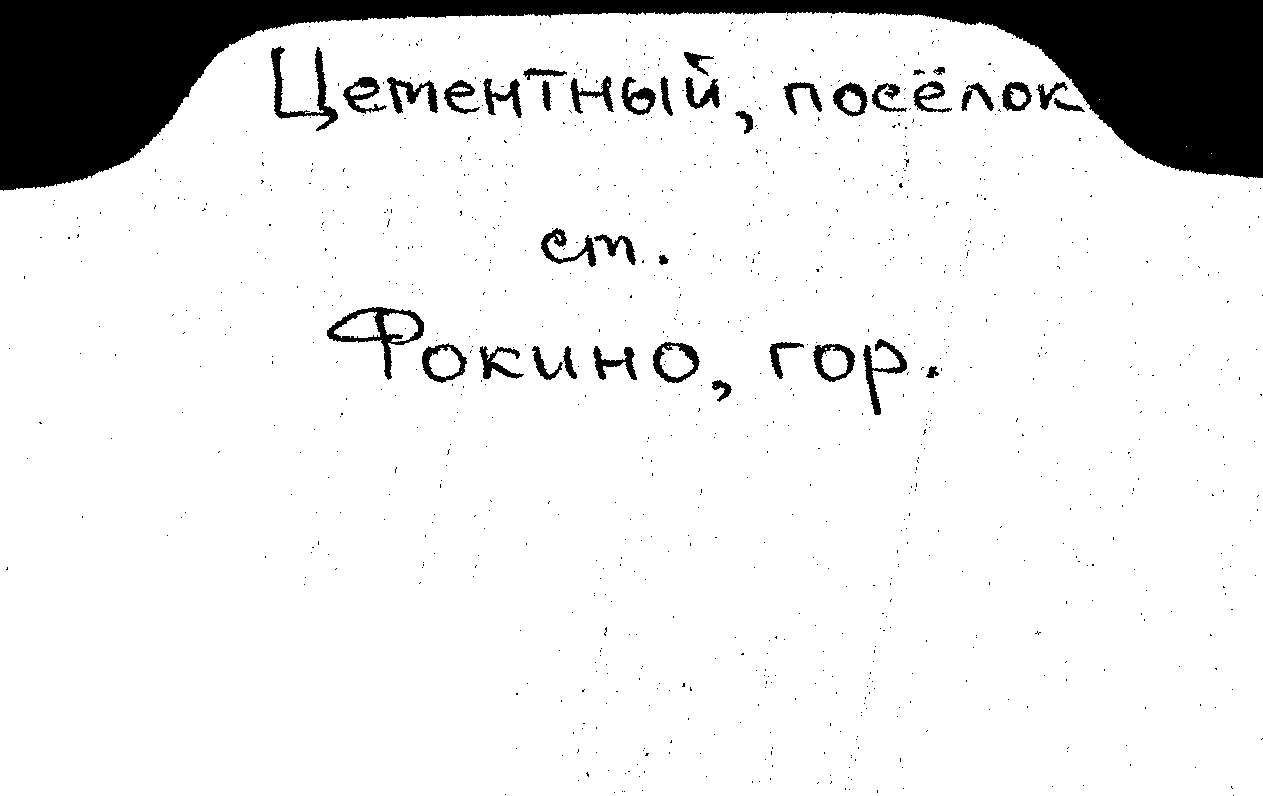 Цементный, посёлок
ст.
Фокино, гор.